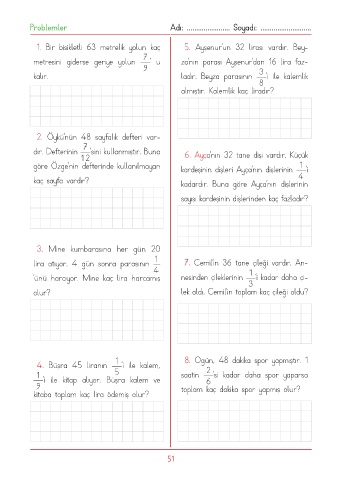 Problemler
Adı: ..................... Soyadı: .........................
1. Bir bisikletli 63 metrelik yolun kaç
metresini giderse geriye yolun 7/9 'u
kalır.
2. Öykü'nün 48 sayfalık defteri var-
dır. Defterinin 7/12 'sini kullanmıştır. Buna
göre Özge'nin defterinde kullanılmayan
kaç sayfa vardır?
3. Mine kumbarasına her gün 20
lira atıyor. 4 gün sonra parasının 1/4
'ünü harcıyor. Mine kaç lira harcamış
olur?
4. Büşra 45 liranın 1/5 'i ile kalem,
1/9 'i ile kitap alıyor. Büşra kalem ve
kitaba toplam kaç lira ödemiş olur?
5. Ayşenur'un 32 lirası vardır. Bey-
za'nın parası Ayşenur'dan 16 lira faz-
ladır. Beyza parasının 3/8 'i ile kalemlik
almıştır. Kalemlik kaç liradır?
6. Ayça'nın 32 tane dişi vardır. Küçük
kardeşinin dişleri Ayça'nın dişlerinin 1/4 'i
kadardır. Buna göre Ayça'nın dişlerinin
sayısı kardeşinin dişlerinden kaç fazladır?
7. Cemil'in 36 tane çileği vardır. An-
nesinden çileklerinin 1/3 'i kadar daha çi-
lek aldı. Cemil'in toplam kaç çileği oldu?
8. Ogün, 48 dakika spor yapmıştır. 1
saatin 2/6 'si kadar daha spor yaparsa
toplam kaç dakika spor yapmış olur?
51